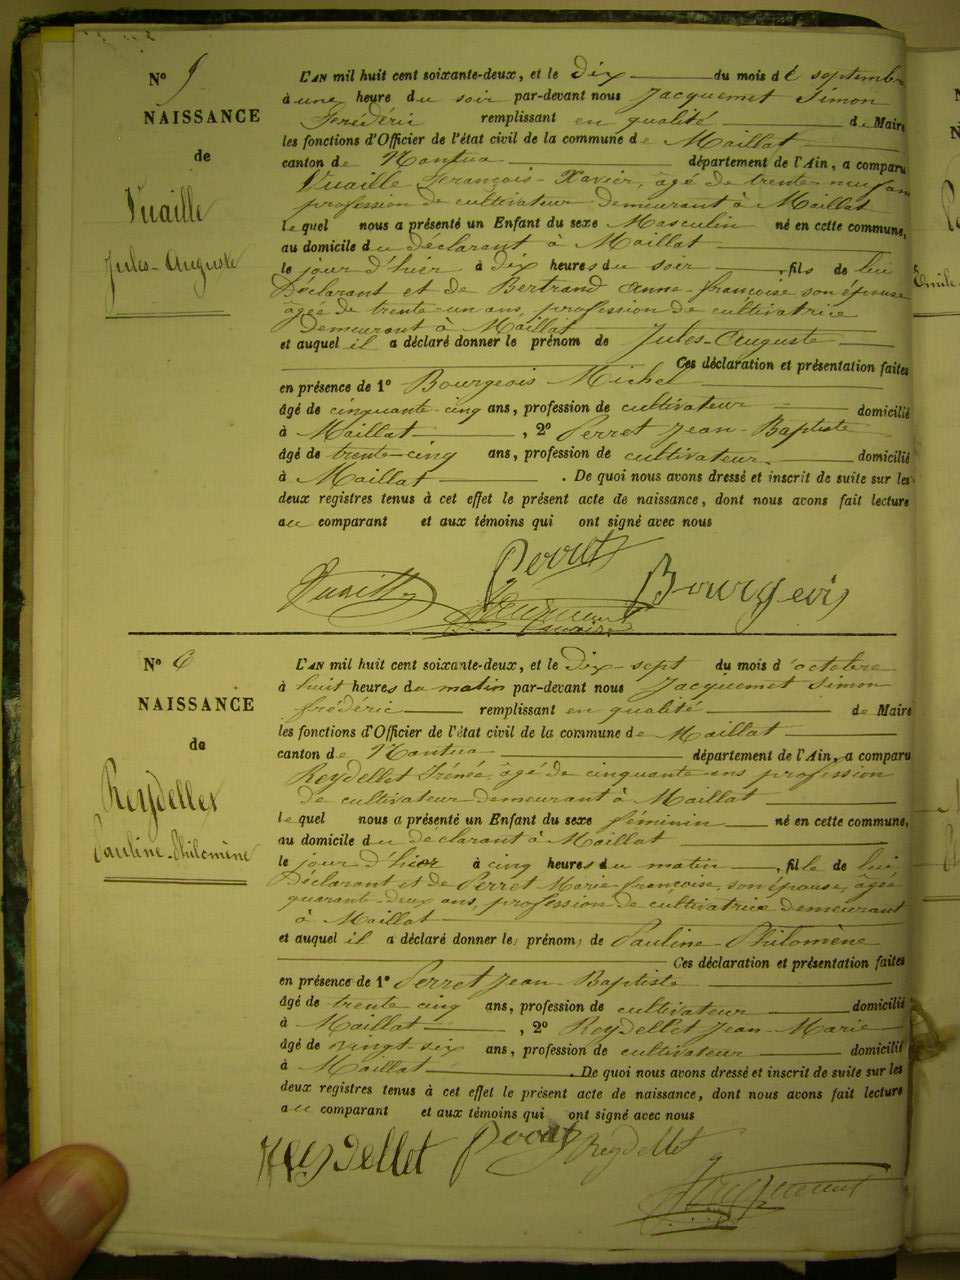 N° 5
NAISSANCE
de
Vuaille
Jules-Auguste
L'AN mil huit cent soixante-deux, et le dix du mois de septembre
à une heure du soir par-devant nous Jacquemet Simon
frédéric remplissant en qualité de Maire
les fonctions d'Officier de l'état civil de la commune de Maillat
canton de Nantua département de l'Ain, a comparu
Vuaille François-Xavier, âgé de trente-neuf ans
profession de cultivateur demeurant à Maillat
lequel nous a présenté un Enfant du sexe Masculin né en cette commune,
au domicile du déclarant à Maillat
le jour d'hier à dix heures du soir, fils de lui
Déclarant et de Bertrand anne-françoise son épouse
âgée de trente-un ans, profession de cultivatrice
demeurant à Maillat
et auquel il a déclaré donner le prénom de Jules-Auguste
Ces déclaration et présentation faites
en présence de 1° Bourgeois Michel
âgé de cinquante-cinq ans, profession de cultivateur domicilié
à Maillat, 2° Perret Jean-Baptiste
âgé de trente-cinq ans, profession de cultivateur domicilié
à Maillat. De quoi nous avons dressé et inscrit de suite sur les
deux registres tenus à cet effet le présent acte de naissance, dont nous avons fait lecture
au comparant et aux témoins qui ont signé avec nous
Perret
Vuaille Bourgeois
Jacquemet
maire
N° 6
NAISSANCE
de
Reydellet
Pauline-Philomène
L'AN mil huit cent soixante-deux, et le dix-sept du mois d'octobre
à huit heures du matin par-devant nous Jacquemet Simon
frédéric remplissant en qualité de Maire
les fonctions d'Officier de l'état civil de la commune de Maillat
canton de Nantua département de l'Ain, a comparu
Reydellet Irénée, âgé de cinquante ans profession
de cultivateur demeurant à Maillat
lequel nous a présenté un Enfant du sexe féminin né en cette commune,
au domicile du déclarant à Maillat
le jour d'hier à cinq heures du matin, fille de lui
Déclarant et de Perret Marie-françoise, son épouse, âgée
quarant-deux ans, profession de cultivatrice demeurant
à Maillat
et auquel il a déclaré donner les prénoms de Pauline-Philomène
Ces déclaration et présentation faites
en présence de 1° Perret Jean Baptiste
âgé de trente cinq ans, profession de cultivateur domicilié
à Maillat, 2° Reydellet Jean-Marie
âgé de vingt-six ans, profession de cultivateur domicilié
à Maillat. De quoi nous avons dressé et inscrit de suite sur les
deux registres tenus à cet effet le présent acte de naissance, dont nous avons fait lecture
au comparant et aux témoins qui ont signé avec nous
Reydellet Perret Reydellet
Jacquemet